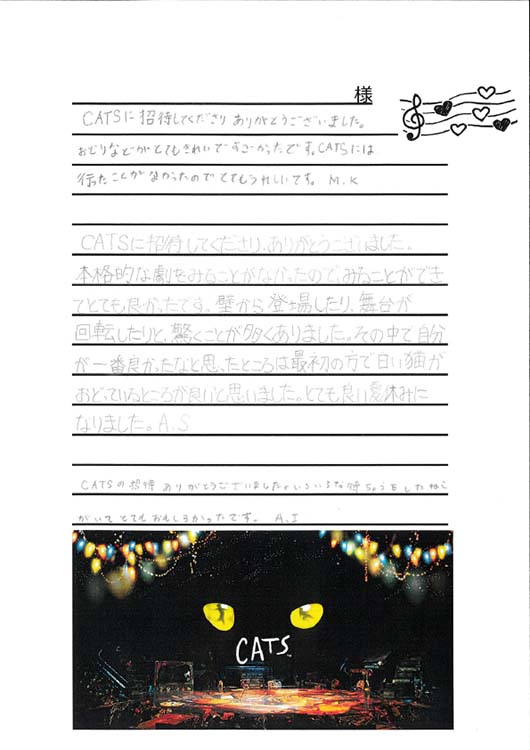 様
CATSに招待してくださり ありがとうございました。
おどりなどがとてもきれいですごかったです。CATSには
行ったことがなかったので とてもうれしいです。 M.K
CATSに招待してくださり、ありがとうございました。
本格的な劇をみることがなかったので、みることができ
てとても良かったです。壁から登場したり、舞台が
回転したりと、驚くことが多くありました。その中で自分
が一番良かったなと思ったところは最初の方で白い猫が
おどっているところが良いと思いました。とても良い夏休みに
なりました。A.S
CATSの招待 ありがとうございました。いろいろな特ちょうをしたねこ
がいて とてもおもしろかったです。 A.I
CATS